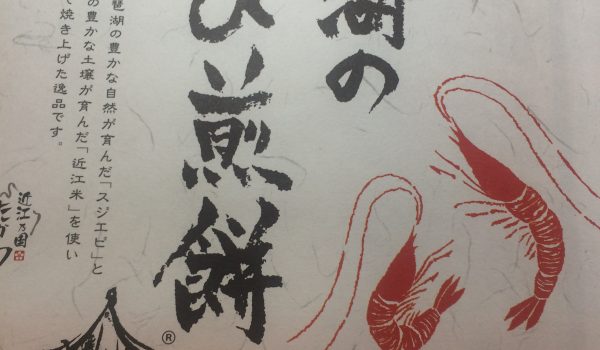 湖の
び煎餅
琶湖の豊かな自然が育んだ「スジエビ」と
の豊かな土壌が育んだ「近江米」を使い
で焼き上げた逸品です。
近江の国
®